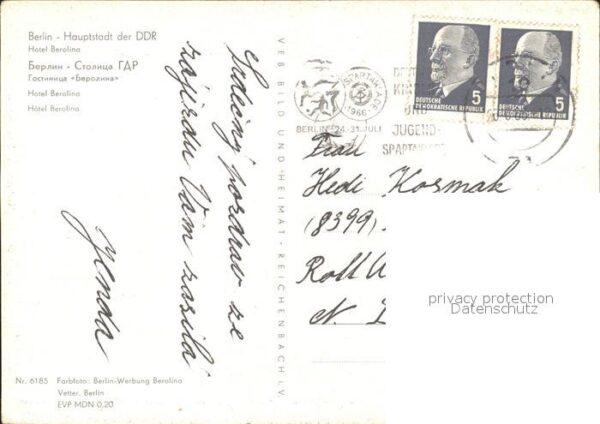 Berlin - Hauptstadt der DDR
Hotel Berolina
Берлин - Столица ГДР
Гостиница «Беролина»
Hotel Berolina
Hôtel Berolina
Srdečný pozdrav ze
zájezdu Vám zasílá
Jenda
Nr. 6185 Farbfoto: Berlin-Werbung Berolina
Vetter, Berlin
EVP MDN 0,20
VEB BILD UND HEIMAT · REICHENBACH i. V.
SPARTAKIADE
1966
BERLIN 24.-31. JULI
UND
JUGEND-
DEUTSCHE
DEMOKRATISCHE REPUBLIK
5
DEUTSCHE
DEMOKRATISCHE REPUBLIK
5
Frau
Hedi Kosmak
(8399)
Rott
N.
privacy protection
Datenschutz